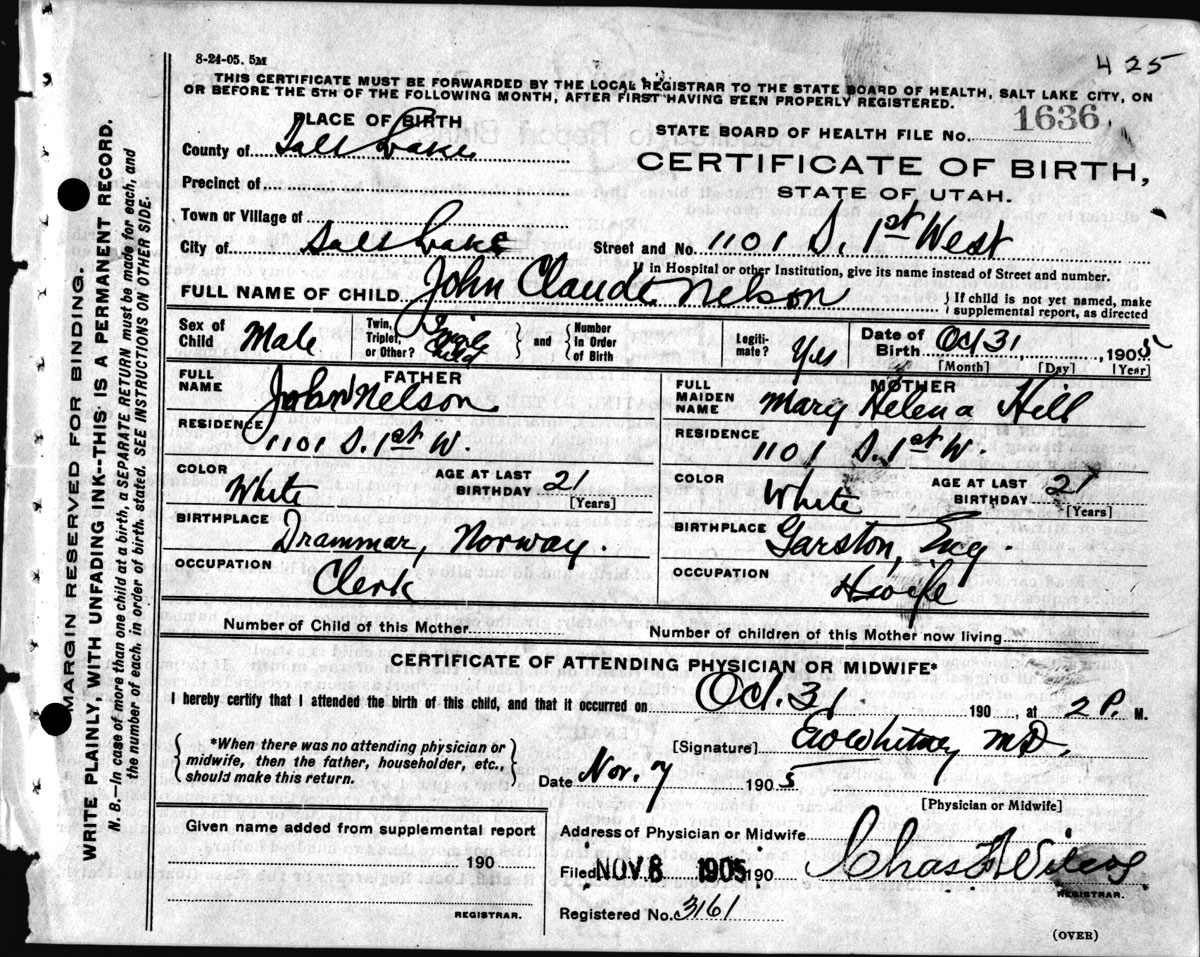 8-24-05. 5M
425
THIS CERTIFICATE MUST BE FORWARDED BY THE LOCAL REGISTRAR TO THE STATE BOARD OF HEALTH, SALT LAKE CITY, ON
OR BEFORE THE 5TH OF THE FOLLOWING MONTH, AFTER FIRST HAVING BEEN PROPERLY REGISTERED.
PLACE OF BIRTH
STATE BOARD OF HEALTH FILE NO. 1636
County of Salt Lake
CERTIFICATE OF BIRTH,
STATE OF UTAH.
Precinct of
Town or Village of
City of Salt Lake Street and No. 1101 S. 1st West
If in Hospital or other Institution, give its name instead of Street and number.
FULL NAME OF CHILD John Claude Nelson { If child is not yet named, make supplemental report, as directed
Sex of Child Male Twin, Triplet, or Other? Single Child } and { Number In Order of Birth Legiti-mate? Yes Date of Birth Oct 31, 1905
[Month] [Day] [Year]
FATHER
FULL NAME John Nelson
RESIDENCE 1101 S. 1st W.
COLOR White AGE AT LAST BIRTHDAY 21 [Years]
BIRTHPLACE Drammar, Norway.
OCCUPATION Clerk
MOTHER
FULL MAIDEN NAME Mary Helena Hill
RESIDENCE 1101 S. 1st W.
COLOR White AGE AT LAST BIRTHDAY 21 [Years]
BIRTHPLACE Garston, Eng.
OCCUPATION Hwife
Number of Child of this Mother Number of children of this Mother now living
CERTIFICATE OF ATTENDING PHYSICIAN OR MIDWIFE*
I hereby certify that I attended the birth of this child, and that it occurred on Oct. 31 190 , at 2 P. M.
{ *When there was no attending physician or midwife, then the father, householder, etc., should make this return. }
[Signature] Whitney M.D.
Date Nov. 7 1905
[Physician or Midwife]
Given name added from supplemental report
190
REGISTRAR.
Address of Physician or Midwife
Filed NOV 8 1905 190 Chas Wilcox
REGISTRAR.
Registered No. 3161
(OVER)
MARGIN RESERVED FOR BINDING.
WRITE PLAINLY, WITH UNFADING INK--THIS IS A PERMANENT RECORD.
N. B.—In case of more than one child at a birth, a SEPARATE RETURN must be made for each, and
the number of each, in order of birth, stated. SEE INSTRUCTIONS ON OTHER SIDE.